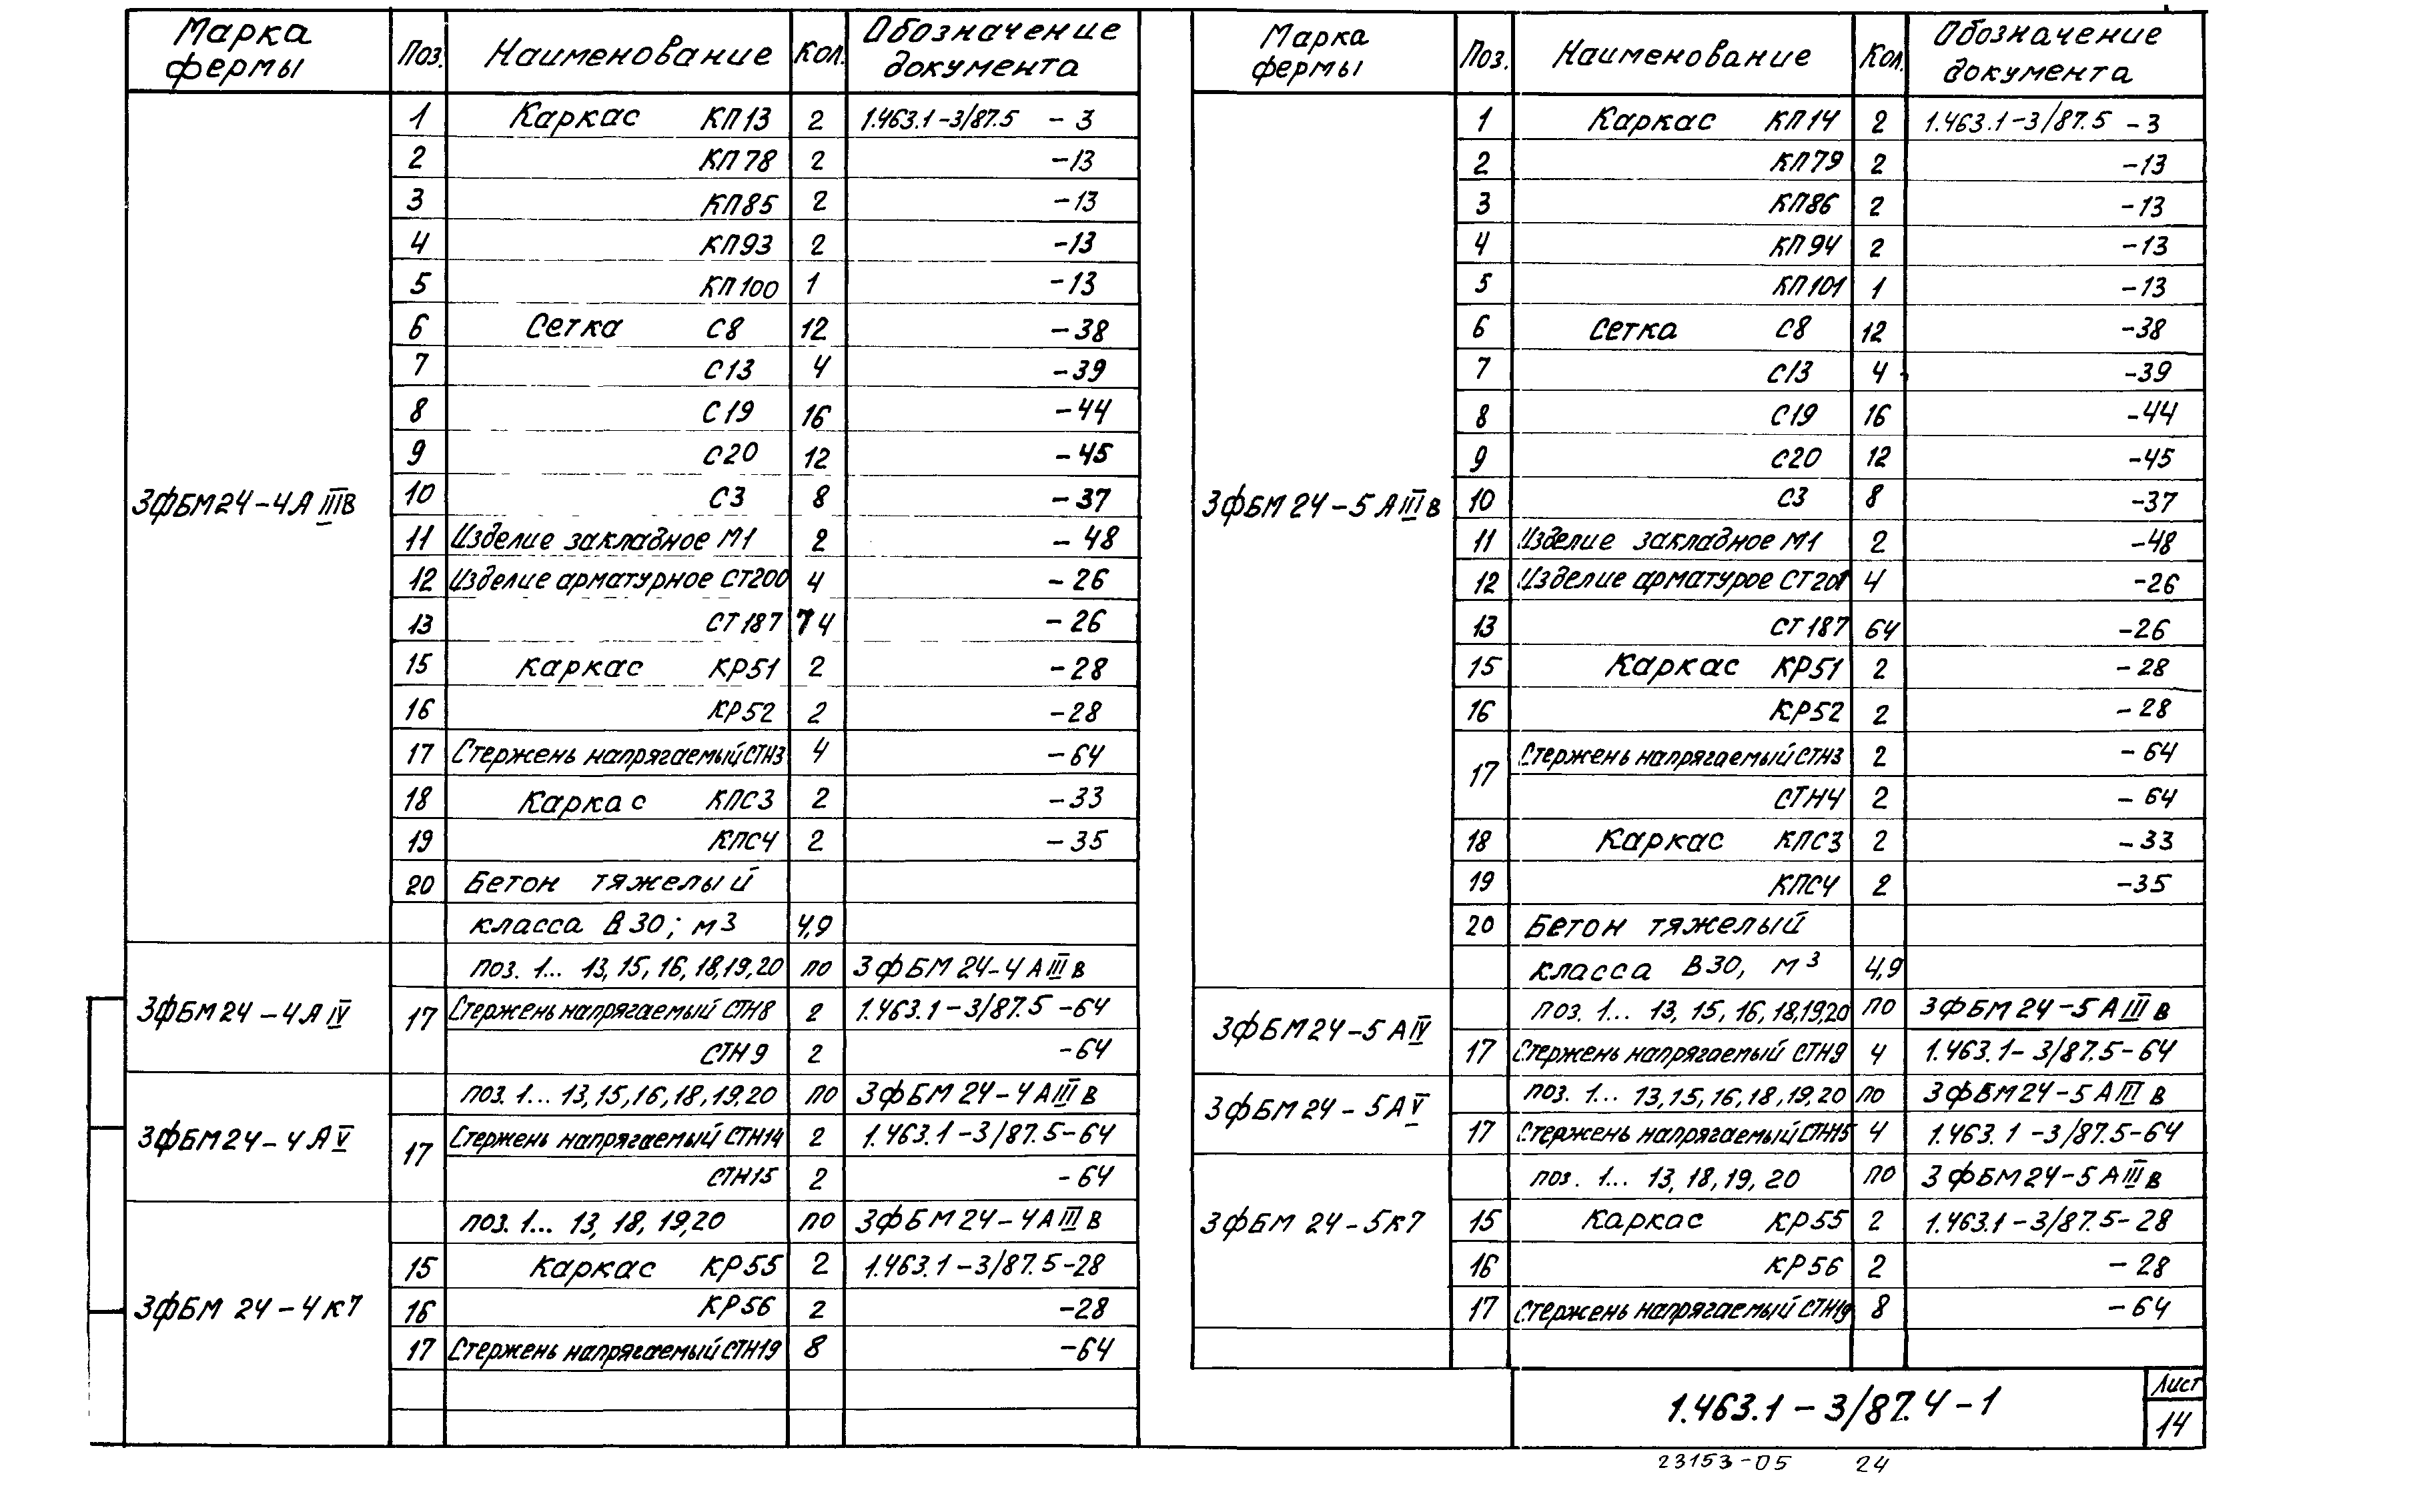 Марка фермы Поз. Наименование Кол. Обозначение документа
1 Каркас КП13 2 1.463.1-3/87.5 -3
2 КП78 2 -13
3 КП85 2 -13
4 КП93 2 -13
5 КП100 1 -13
6 Сетка С8 12 -38
7 С13 4 -39
8 С19 16 -44
9 С20 12 -45
3ФБМ24-4АIIIВ 10 С3 8 -37
11 Изделие закладное М1 2 -48
12 Изделие арматурное СТ200 4 -26
13 СТ187 74 -26
15 Каркас КР51 2 -28
16 КР52 2 -28
17 Стержень напрягаемый СТН3 4 -64
18 Каркас КПС3 2 -33
19 КПС4 2 -35
20 Бетон тяжелый
класса В30; м3 4,9
поз. 1... 13, 15, 16, 18, 19, 20 по 3ФБМ24-4АIIIВ
3ФБМ24-4АIV 17 Стержень напрягаемый СТН8 2 1.463.1-3/87.5-64
СТН9 2 -64
поз. 1... 13, 15, 16, 18, 19, 20 по 3ФБМ24-4АIIIВ
3ФБМ24-4АV 17 Стержень напрягаемый СТН14 2 1.463.1-3/87.5-64
СТН15 2 -64
поз. 1... 13, 18, 19, 20 по 3ФБМ24-4АIIIВ
15 Каркас КР55 2 1.463.1-3/87.5-28
3ФБМ 24-4к7 16 КР56 2 -28
17 Стержень напрягаемый СТН19 8 -64
Марка фермы Поз. Наименование Кол. Обозначение документа
1 Каркас КП14 2 1.463.1-3/87.5 -3
2 КП79 2 -13
3 КП86 2 -13
4 КП94 2 -13
5 КП101 1 -13
6 Сетка С8 12 -38
7 С13 4 -39
8 С19 16 -44
9 С20 12 -45
3ФБМ24-5АIIIВ 10 С3 8 -37
11 Изделие закладное М1 2 -48
12 Изделие арматурое СТ201 4 -26
13 СТ187 64 -26
15 Каркас КР51 2 -28
16 КР52 2 -28
17 Стержень напрягаемый СТН3 2 -64
СТН4 2 -64
18 Каркас КПС3 2 -33
19 КПС4 2 -35
20 Бетон тяжелый
класса В30, м³ 4,9
поз. 1... 13, 15, 16, 18, 19, 20 по 3ФБМ24-5АIIIВ
3ФБМ24-5АIV 17 Стержень напрягаемый СТН9 4 1.463.1-3/87.5-64
поз. 1... 13, 15, 16, 18, 19, 20 по 3ФБМ24-5АIIIВ
3ФБМ24-5АV 17 Стержень напрягаемый СТН15 4 1.463.1-3/87.5-64
поз. 1... 13, 18, 19, 20 по 3ФБМ24-5АIIIВ
3ФБМ 24-5к7 15 Каркас КР55 2 1.463.1-3/87.5-28
16 КР56 2 -28
17 Стержень напрягаемый СТН19 8 -64
1.463.1-3/87.4-1
Лист
14
23153-05 24